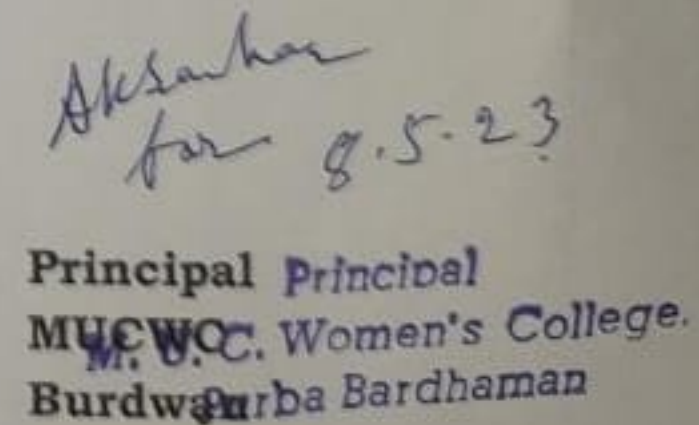 AkSarkar
for 8.5.23
Principal Principal
MUCWC M. U. C. Women's College.
Burdwan Purba Bardhaman